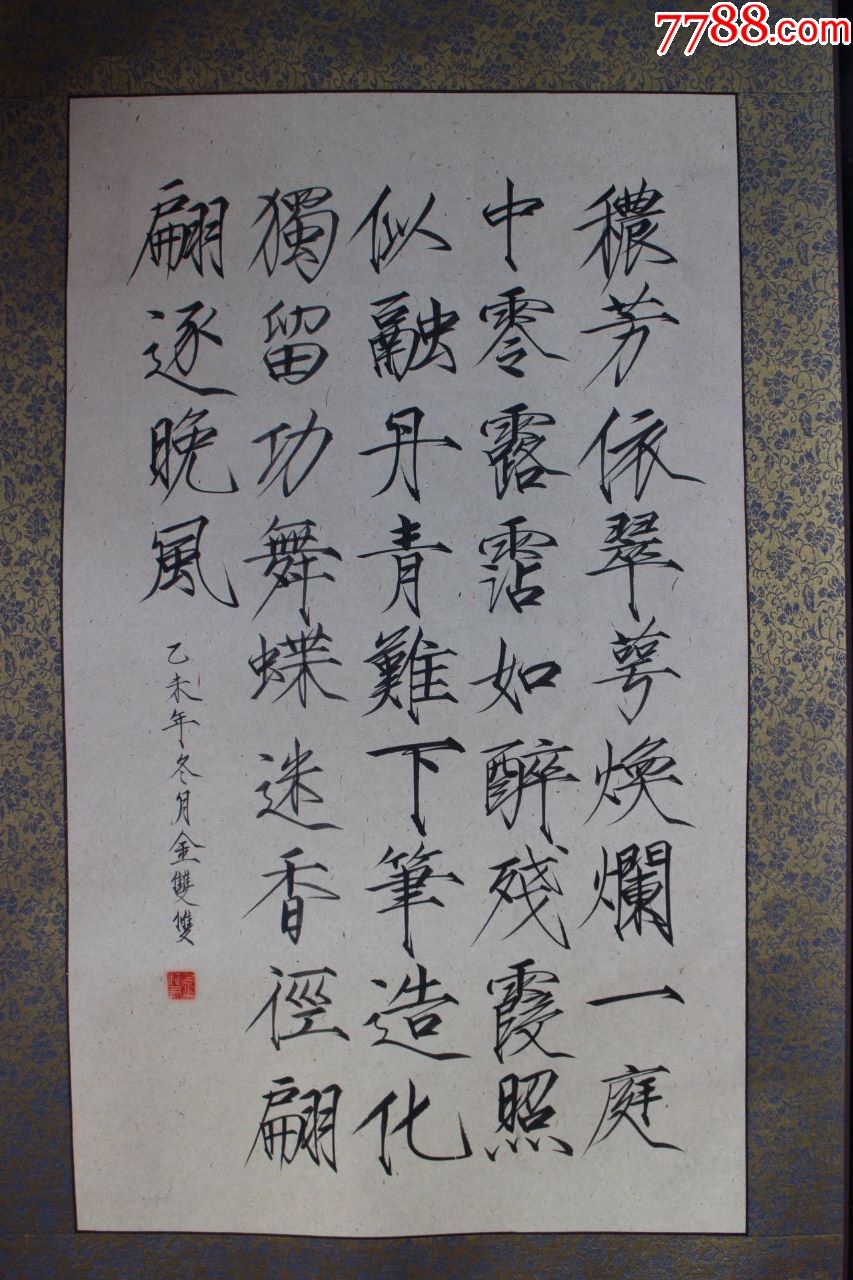 7788.com
穠芳依翠萼煥爛一庭
中零露霑如醉殘霞照
似融丹青難下筆造化
獨留功舞蝶迷香徑翩
翩逐晚風
乙未年冬月金雙雙